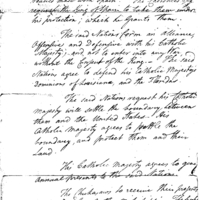 request the King of Spain to take them under
his protection; which he grants them.
The said Nations form an alliance,
Offensive and Defensive with his Catholic
Majesty; and not to enter into
without the Consent of the King. The said
Nations agree to defend his Catholic Majesty's
dominions of Louisiana and the Floridas
The said Nations request his Catholic
majesty will settle the boundary between
them and the United States. His
Catholic Majesty agrees to settle the
boundary, and protect them and their
Land
The Catholic Majesty agrees to give
annual presents to the said Nations.
The Chickasaws to receive their presents